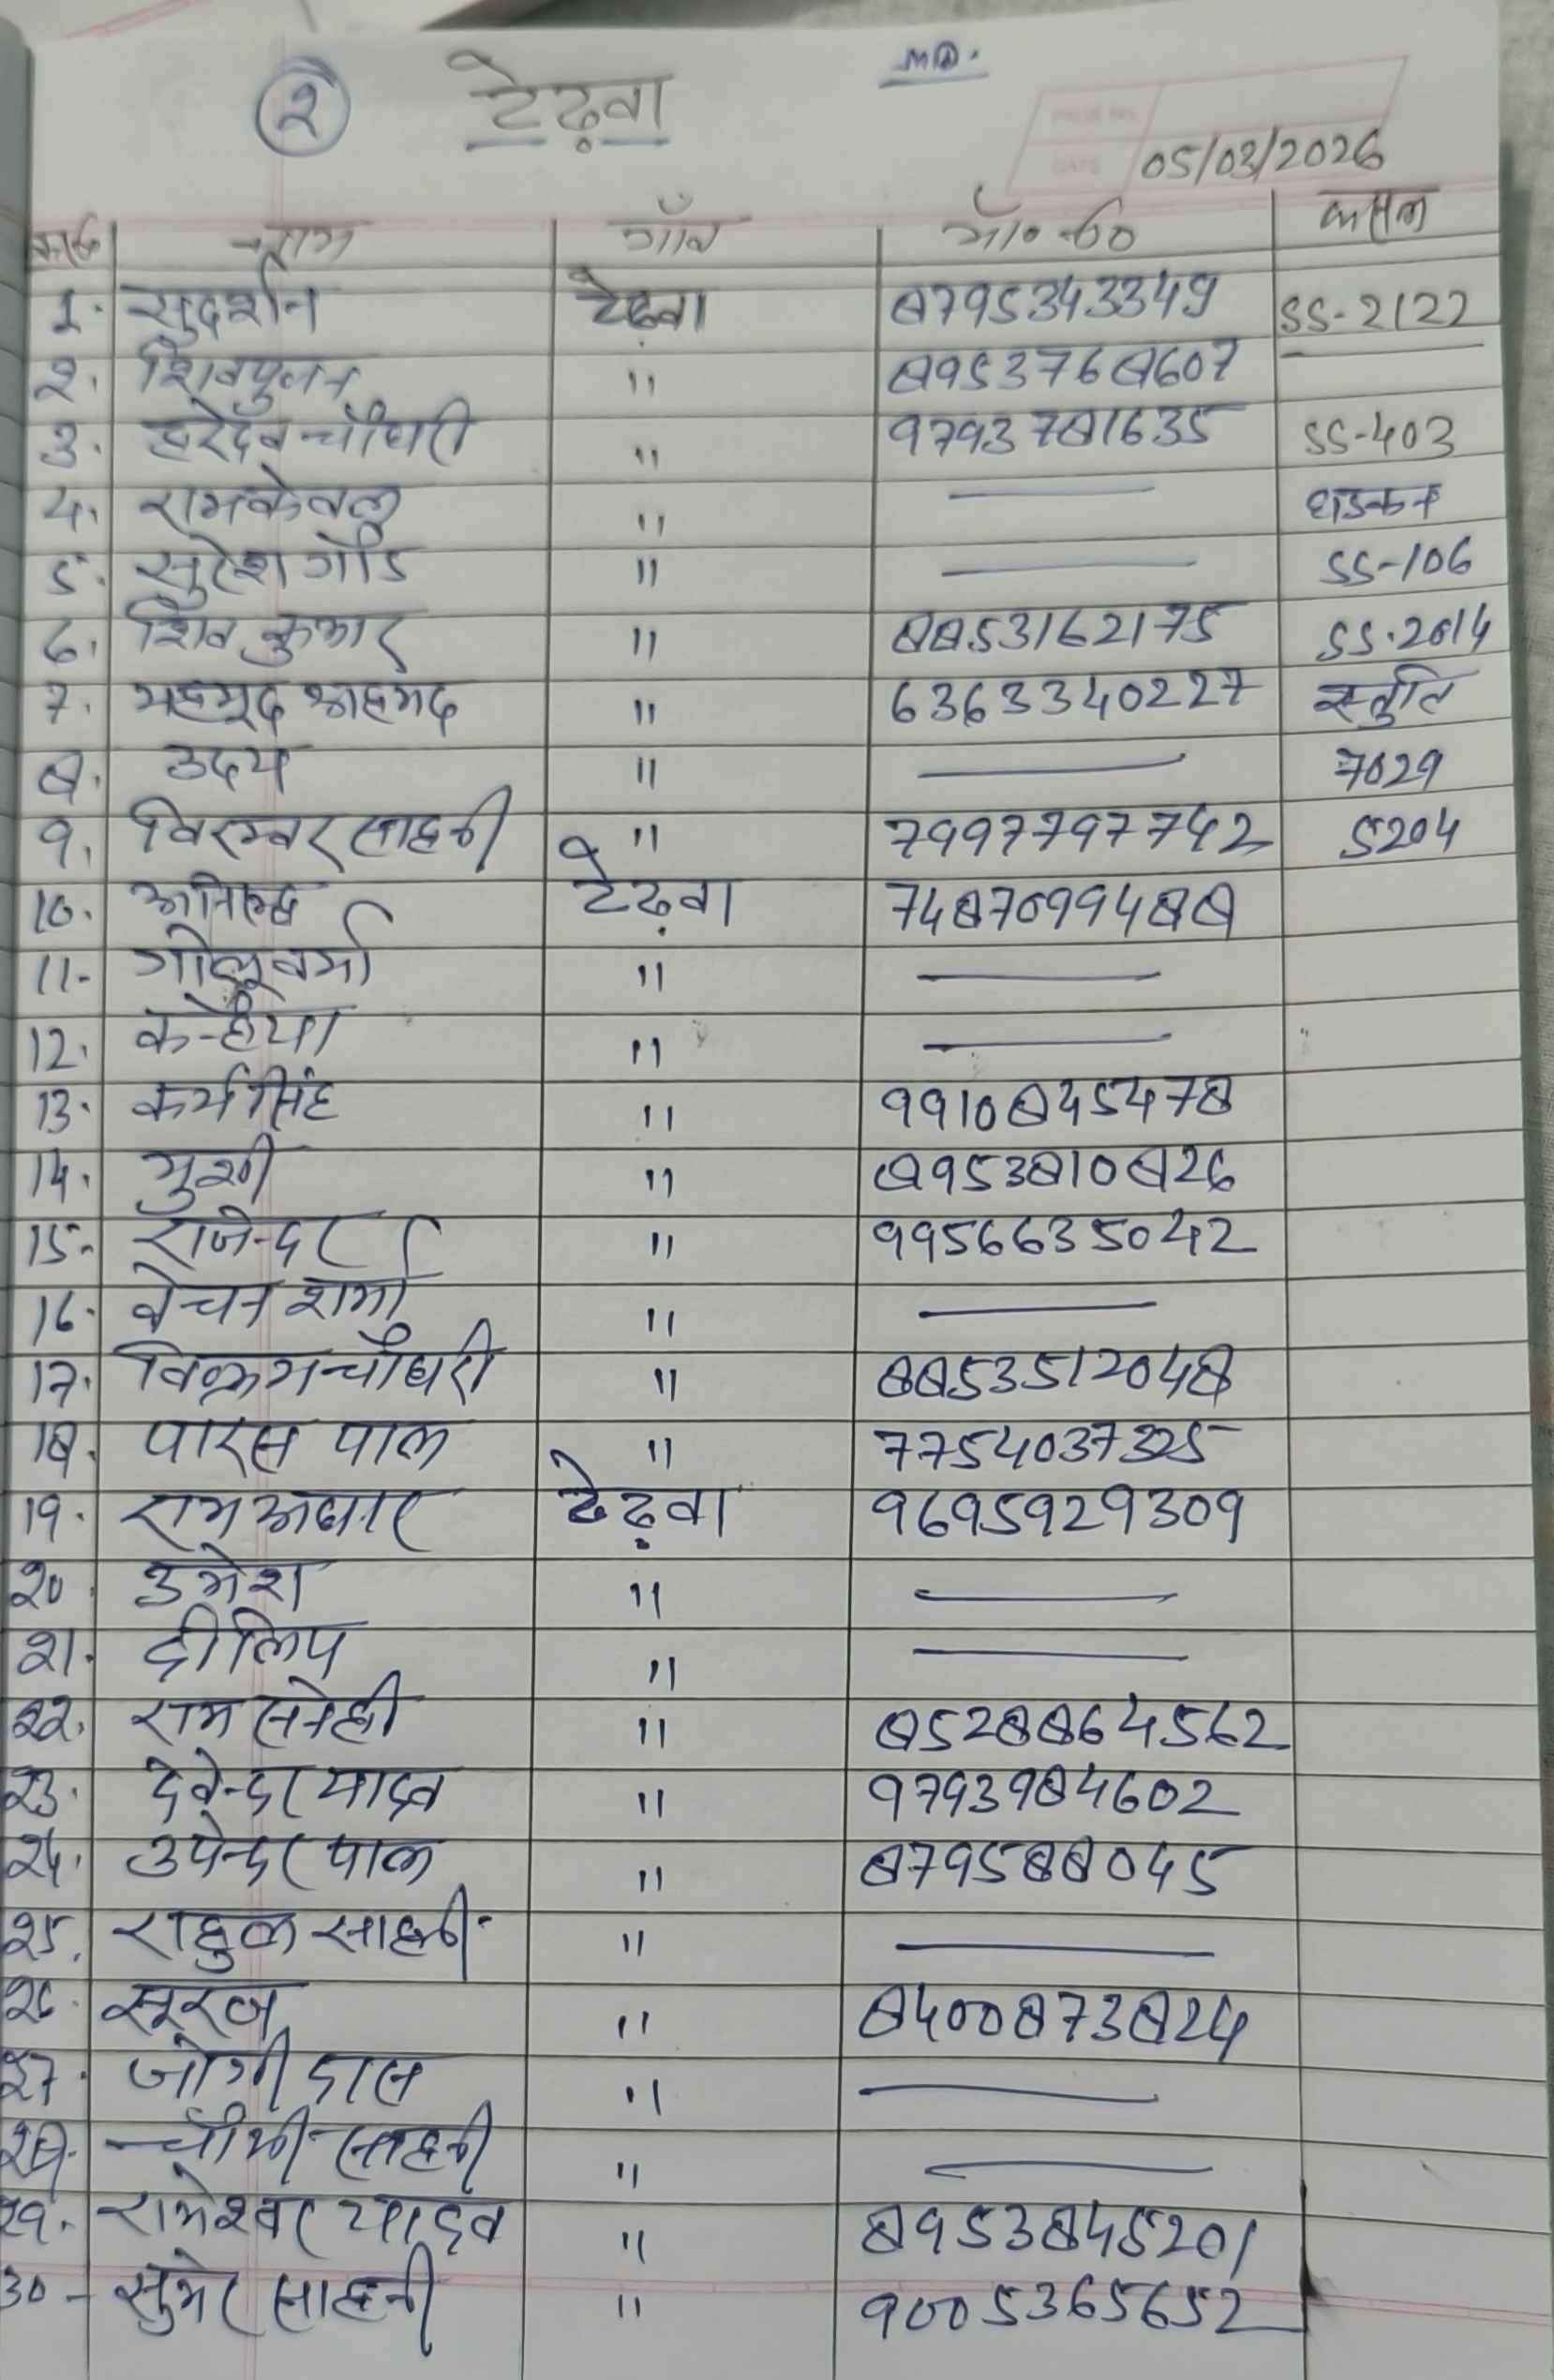 २ टेढ़वा MD.
05/03/2026
क्र०सं० नाम गाँव मो० नं० फसल
1. सुदर्शन टेढ़वा 8795343349 SS-2122
2. शिवपुजन " 8953768607 —
3. हरदेव चौधरी " 9793781635 SS-403
4. रामकेवल " — धडकन
5. सुरेश गौड " — SS-106
6. शिव कुमार " 8853162175 SS.2014
7. महमूद अहमद " 6363340227 स्तुति
8. उदय " — 7029
9. विरम्वर साहनी " 7997797742 5204
10. अनिरुद्ध टेढ़वा 7487099488
11- गोलू वर्मा " —
12. कन्हैया " —
13. कर्मसिंह " 9910845478
14. मुशी " 8953810826
15- राजेन्दर " 9956635042
16. वेचन शर्मा " —
17. विक्रम चौधरी " 8853512048
18. पारस पाल " 7754037325
19. राम अधार टेढ़वा 9695929309
20. उमेश " —
21. दीलिप " —
22. राम सनेही " 8528864562
23. देवेन्दर यादव " 9793984602
24. उपेन्दर पाल " 879588045
25. राहुल साहनी " —
26. सूरज " 8400873824
27. जोगी दास " —
28. साहनी " —
29. रामेश्वर यादव " 8953845201
30- सुमेर साहनी " 9005365652